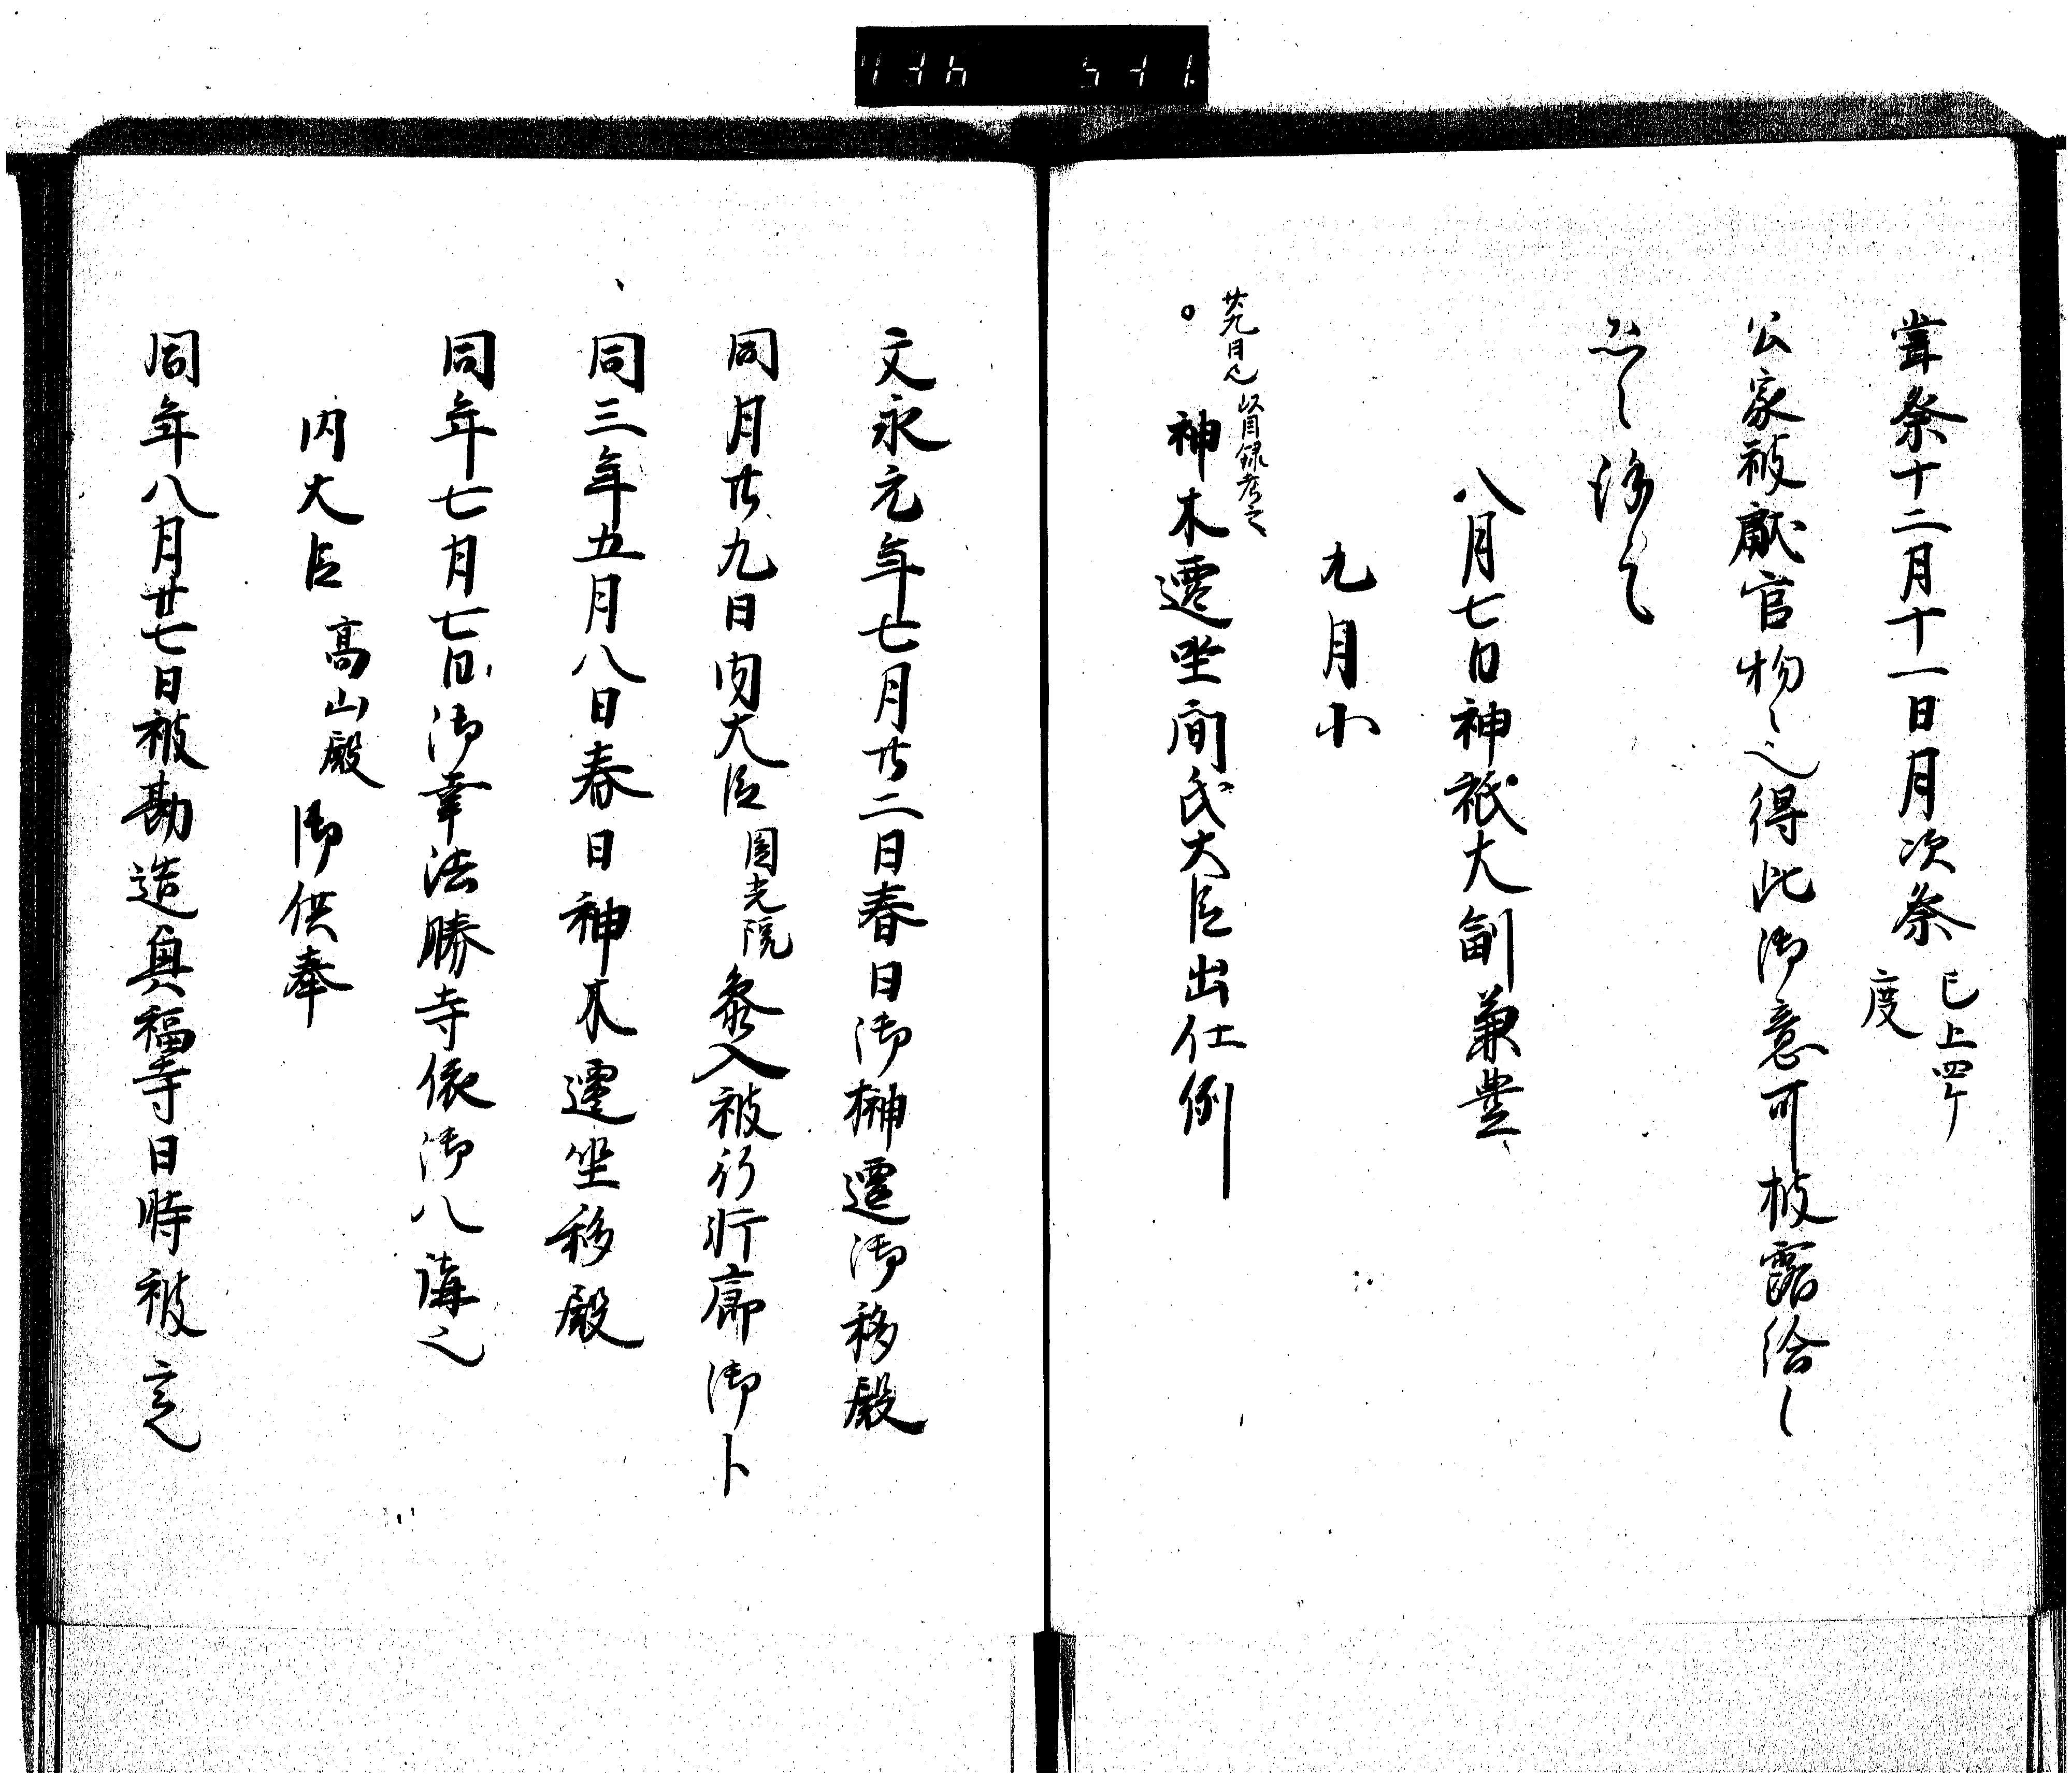 嘗祭十二月十一日月次祭已上四ケ度
公家被献官物之得此御意可披露給
恐々謹言
八月七日神祇大副兼豊
九月小
廿九日也以目録考之
神木遷坐間氏大臣出仕例
文永元年七月廿二日春日御榊遷御移殿
同月廿九日内大臣圓光院参入被行軒廊御卜
同三年五月八日春日神木遷坐移殿
同年七月七日御幸法勝寺依御八講之
内大臣高山殿御供奉
同年八月廿七日被勘造興福寺日時被定